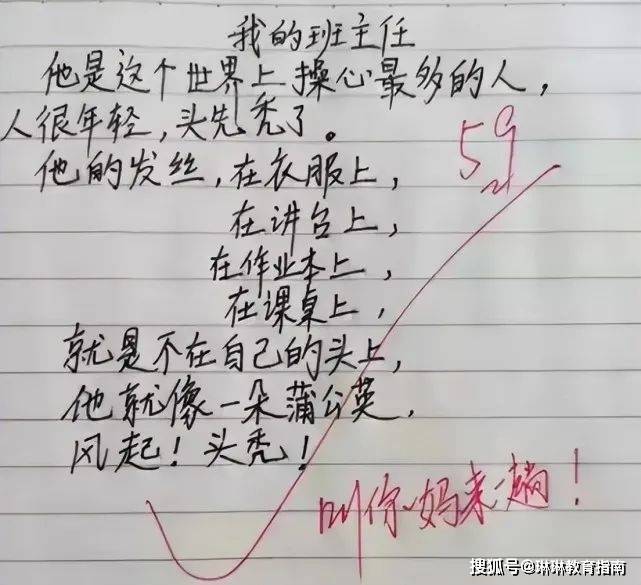 我的班主任
他是这个世界上操心最多的人，
人很年轻，头先秃了。
59
他的发丝，在衣服上，
在讲台上，
在作业本上，
在课桌上，
就是不在自己的头上，
他就像一朵蒲公英，
风起！头秃！
叫你妈来一趟！
搜狐号@琳琳教育指南